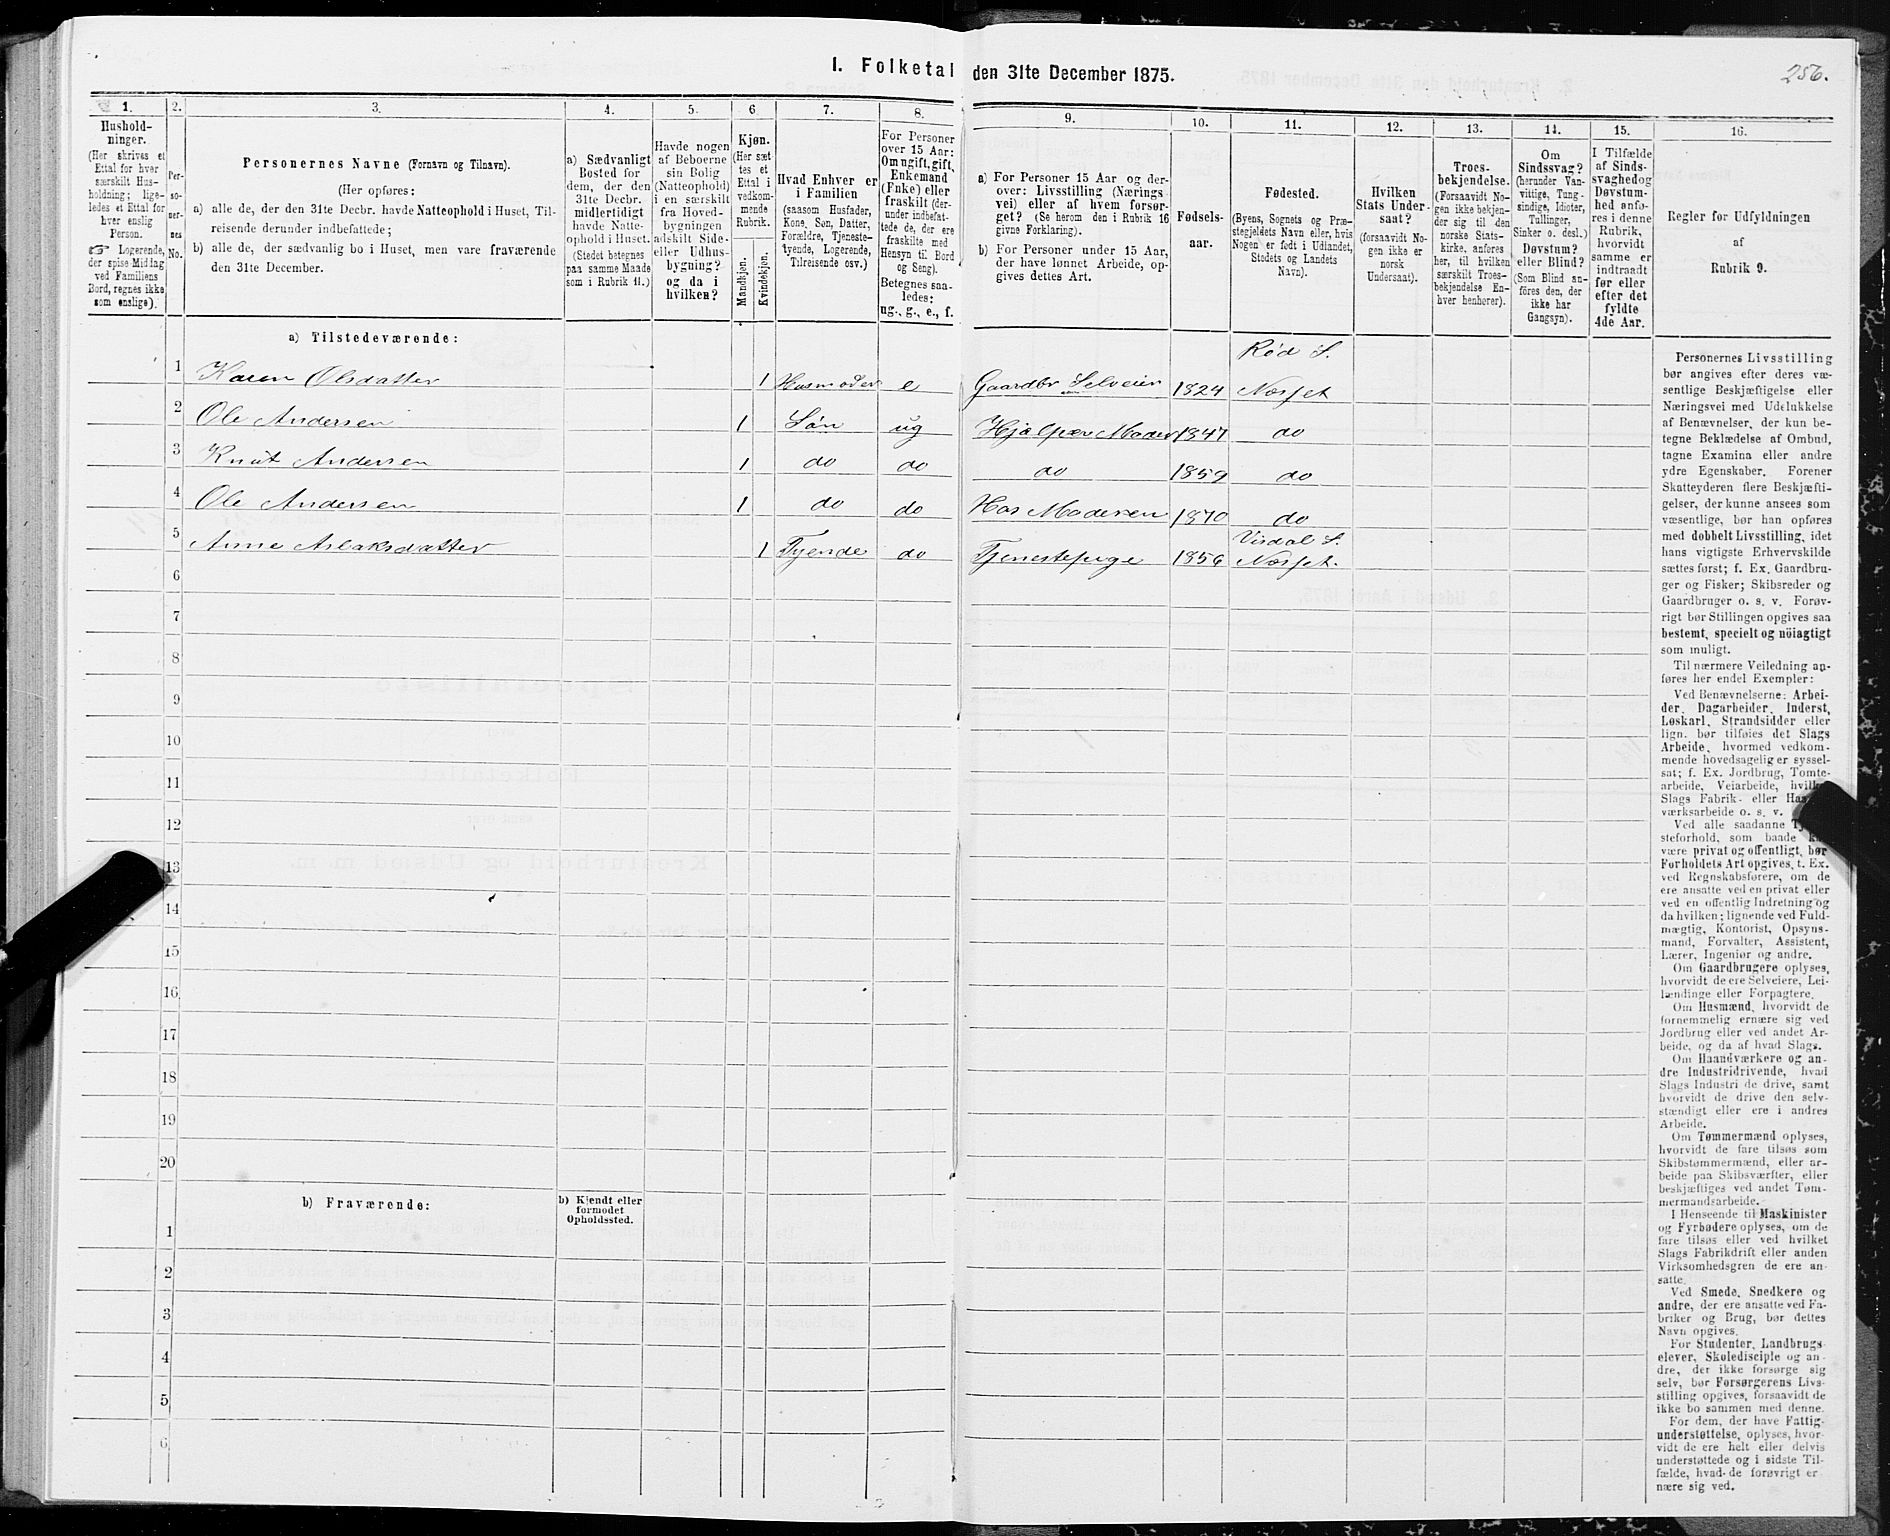 I. Folketal den 31te December 1875.
256.
1.
Husholdninger.
(Her skrives et
Ettal for hver
særskilt Husholdning; ligeledes et Ettal for
hver enslig
Person.
☞ Logerende,
der spise Middag
ved Familiens
Bord, regnes ikke
som enslige).
2.
Personernes
No.
3.
Personernes Navne (Fornavn og Tilnavn).
(Her opføres:
a) alle de, der den 31te Decbr. havde Natteophold i Huset, Tilreisende derunder indbefattede;
b) alle de, der sædvanlig bo i Huset, men vare fraværende
den 31te December.
4.
a) Sædvanligt
Bosted for
dem, der den
31te Decbr.
midlertidigt
havde Natteophold i Huset.
(Stedet betegnes
paa samme Maade
som i Rubrik 11.)
5.
Havde nogen
af Beboerne
sin Bolig
(Natteophold)
i en særskilt
fra Hovedbygningen
adskilt Side- eller Udhusbygning?
og da i
hvilken?
6.
Kjøn.
(Her sættes et
Ettal i
vedkommende
Rubrik.
Mandkjøn.
Kvindekjøn.
7.
Hvad Enhver er
i Familien
(saasom Husfader,
Kone, Søn, Datter,
Forældre, Tjenestetyende, Logerende,
Tilreisende osv.)
8.
For Personer
over 15 Aar:
Om ugift, gift,
Enkemand
(Enke) eller
fraskilt (derunder indbefattede de, der ere
fraskilte med
Hensyn til Bord
og Seng).
Betegnes saaledes:
ug., g., e., f.
9.
a) For Personer 15 Aar og derover: Livsstilling (Næringsvei) eller af hvem forsørget? (Se herom den i Rubrik 16
givne Forklaring).
b) For Personer under 15 Aar,
der have lønnet Arbeide, opgives dettes Art.
10.
Fødselsaar.
11.
Fødested.
(Byens, Sognets og Præstegjeldets Navn eller, hvis
Nogen er født i Udlandet,
Stedets og Landets
Navn).
12.
Hvilken
Stats Undersaat?
(forsaavidt Nogen ikke er
norsk
Undersaat).
13.
Troesbekjendelse.
(Forsaavidt Nogen ikke bekjender sig til den
norske Statskirke, anføres
her, til hvilken
særskilt Troesbekjendelse Enhver henhører).
14.
Om
Sindssvag?
(herunder Vanvittige, Tungsindige, Idioter,
Tullinger,
Sinker o. desl.)
Døvstum?
eller Blind?
(Som Blind anføres den, der
ikke har
Gangsyn).
15.
I Tilfælde
af Sindssvaghed og
Døvstumhed anføres i denne
Rubrik,
hvorvidt
samme er
indtraadt
før eller
efter det
fyldte
4de Aar.
16.
Regler for Udfyldningen
af
Rubrik 9.
a) Tilstedeværende:
Rød S.
1 Karen Olsdatter 1 Husmoder e Gaardbr Selveier 1824 Næsset
2 Ole Andersen 1 Søn ug Hjælper Moder 1847 do
3 Knut Andersen 1 do do do 1859 do
4 Ole Andersen 1 do do Hos Moderen 1870 do
Visdal S.
5 Anne Aslaksdatter 1 Tyende do Tjenestepige 1856 Næsset.
6
7
8
9
10
11
12
13
14
15
16
17
18
19
20
b) Fraværende:
b) Kjendt eller
formodet
Opholdssted.
1
2
3
4
5
6
Personernes Livsstilling
bør angives efter deres væsentlige Beskjæftigelse eller
Næringsvei med Udelukkelse
af Benævnelser, der kun betegne Beklædelse af Ombud,
tagne Examina eller andre
ydre Egenskaber. Forener
Skatteyderen flere Beskjæftigelser, der kunne ansees som
væsentlige, bør han opføres
med dobbelt Livsstilling, idet
hans vigtigste Erhvervskilde
sættes først; f. Ex. Gaardbruger og Fisker; Skibsreder og
Gaardbruger o. s. v. Forøvrigt bør Stillingen opgives saa
bestemt, specielt og nöiagtigt
som muligt.
Til nærmere Veiledning anføres her endel Exempler:
Ved Benævnelserne: Arbeider, Dagarbeider, Inderst,
Løskarl, Strandsidder eller
lign. bør tilføies det Slags
Arbeide, hvormed vedkommende hovedsagelig er sysselsat; f. Ex. Jordbrug, Tomtearbeide, Veiarbeide,
Slags Fabrik- eller
værksarbeide o. s. v.
Ved alle saadanne
steforhold, som baade
være privat og offentligt, bør
Forholdets Art opgives, t. Ex.
ved Regnskabsførere, om de
ere ansatte ved en privat eller
ved en offentlig Indretning og
da hvilken; lignende ved Fuldmægtig, Kontorist, Opsynsmand, Forvalter, Assistent,
Lærer, Ingeniør og andre.
Om Gaardbrugere oplyses,
hvorvidt de ere Selveiere, Leilændinge eller Forpagtere.
Om Husmænd, hvorvidt de
fornemmelig ernære sig ved
Jordbrug eller ved andet Arbeide, og da af hvad Slags.
Om Haandværkere og andre Industridrivende, hvad
Slags Industri de drive, samt
hvorvidt de drive den selvstændigt eller ere i andres
Arbeide.
Om Tømmermænd oplyses,
hvorvidt de fare tilsøs som
Skibstømmermænd, eller arbeide paa Skibsværfter, eller
beskjæftiges ved andet Tømmermandsarbeide.
I Henseende til Maskinister
og Fyrbødere oplyses, om de
fare tilsøs eller ved hvilket
Slags Fabrikdrift eller anden
Virksomhedsgren de ere ansatte.
Ved Smede, Snedkere og
andre, der ere ansatte ved Fabriker og Brug, bør dettes
Navn opgives.
For Studenter, Landbrugselever, Skoledisciple og andre, der ikke forsørge sig
selv, bør Forsørgerens Livsstilling opgives, forsaavidt de
ikke bo sammen med denne.
For dem, der have Fattigunderstøttelse, oplyses, hvorvidt de ere helt eller delvis
understøttede og i sidste Tilfælde, hvad de forøvrigt ernære sig ved.